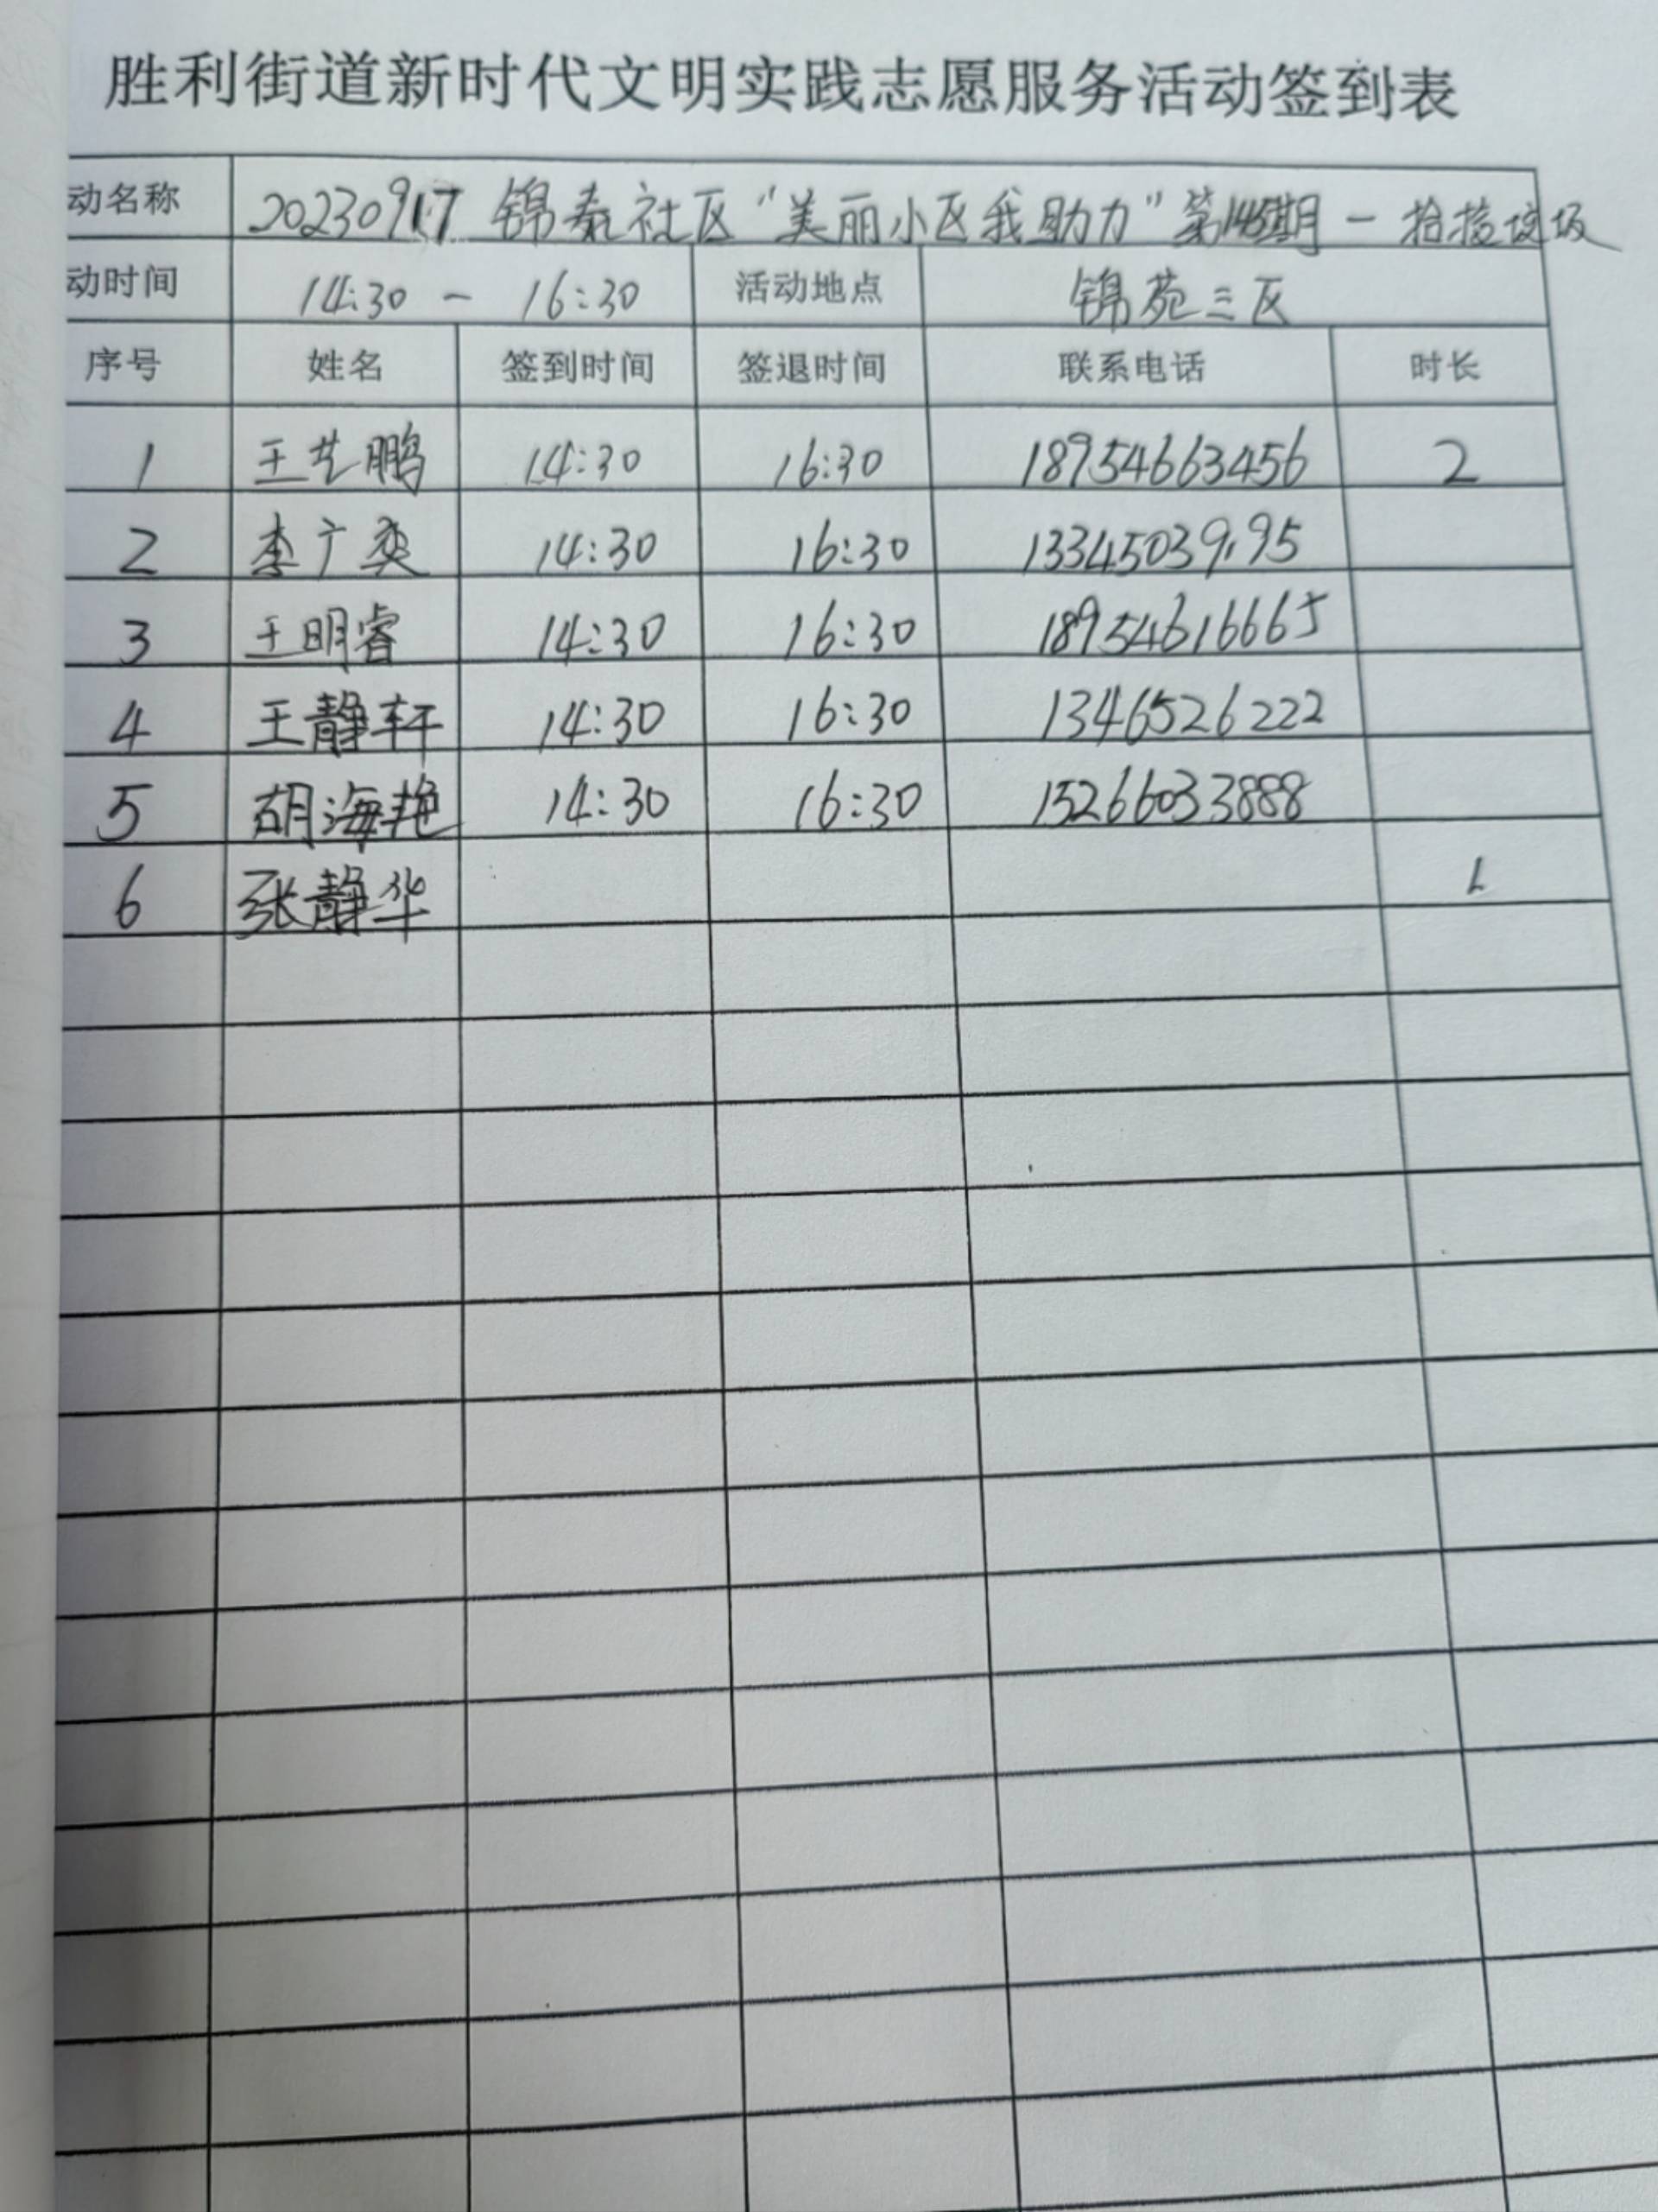 胜利街道新时代文明实践志愿服务活动签到表
动名称 20230917 锦泰社区“美丽小区我助力”第145期 — 捡捡垃圾
动时间 14:30 - 16:30 活动地点 锦苑三区
序号 姓名 签到时间 签退时间 联系电话 时长
1 王艺鹏 14:30 16:30 18954663456 2
2 李广奕 14:30 16:30 13345039195
3 王明睿 14:30 16:30 18954616665
4 王静轩 14:30 16:30 1346526222
5 胡海艳 14:30 16:30 15266033888
6 张静华